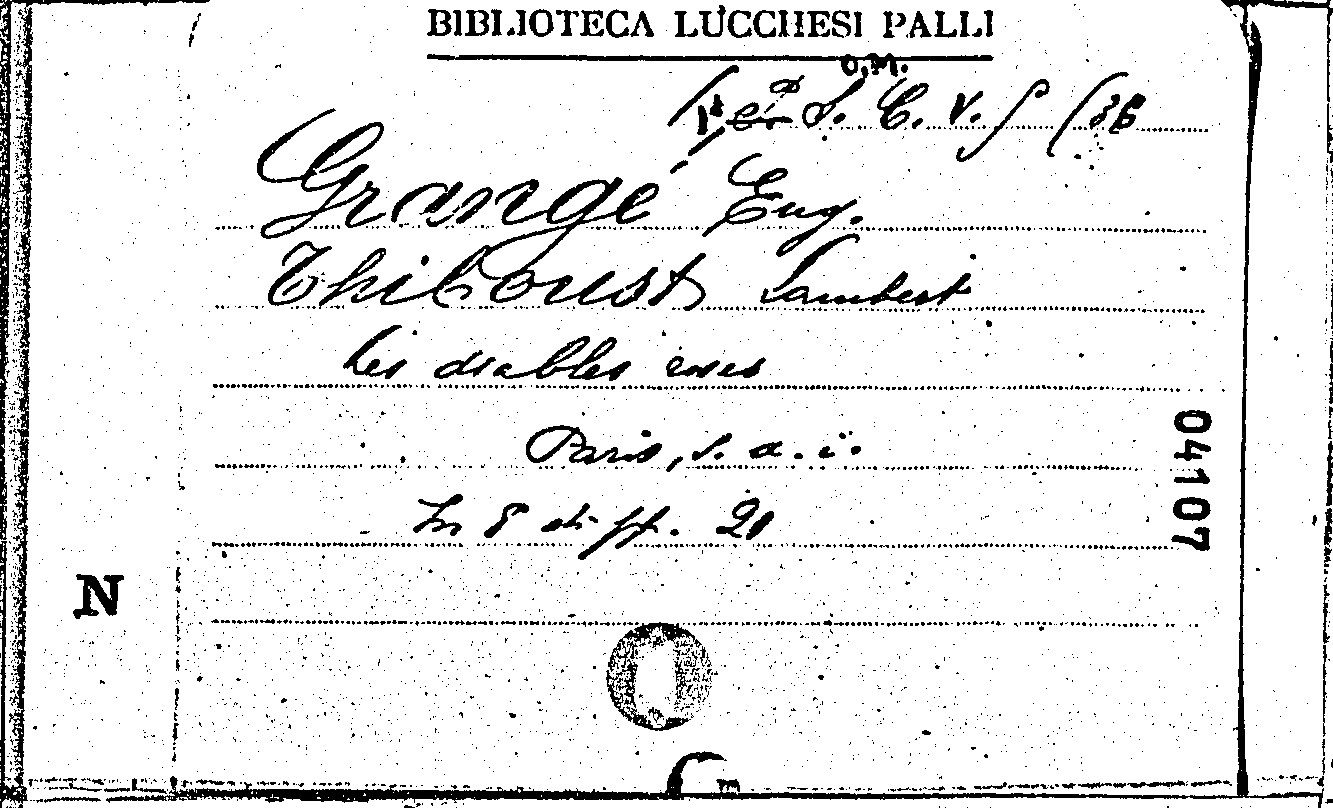 BIBLIOTECA LUCCHESI PALLI
O.M.
S. C. V. f (36
Grangé Eug.
Thiboust Lambert
Les diables roses
Paris, s. a. i.
In 8° di pp. 20
04107
N